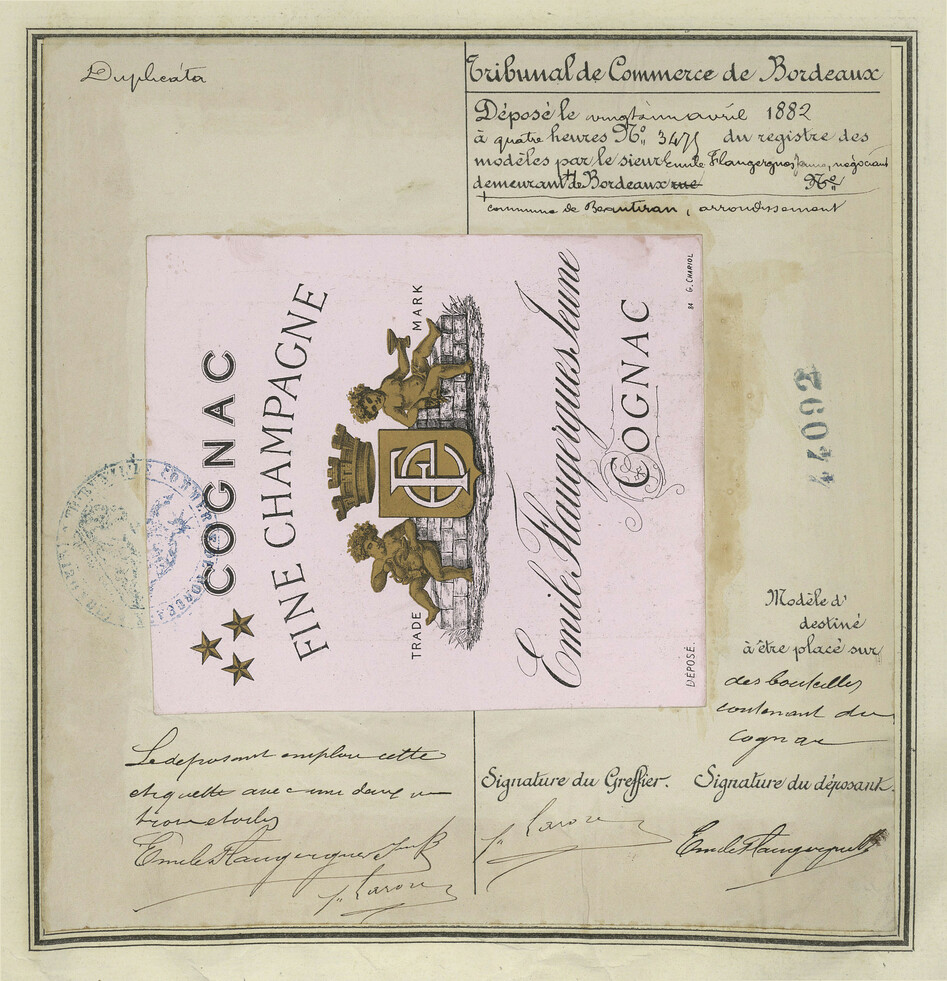 Duplicata
Tribunal de Commerce de Bordeaux
Déposé le vingt avril 1882
à quatre heures No. 3475 du registre des
modèles par le sieur Emile Flangergues Jeune, négociant
demeurant à Bordeaux rue No
commune de Beautiran, arrondissement
COGNAC
FINE CHAMPAGNE
TRADE MARK
FE
Emile Flaugergues Jeune
COGNAC
DÉPOSÉ.
84 G. CHARIOL
44092
TRIBUNAL DE COMMERCE BORDEAUX
Modèle d'
destiné
à être placé sur
des bouteilles
contenant du
cognac
Le déposant emploie cette
étiquette avec une deux ou
trois étoiles
Emile Flaugergues
Signature du Greffier.
Signature du déposant.
Emile Flaugergues